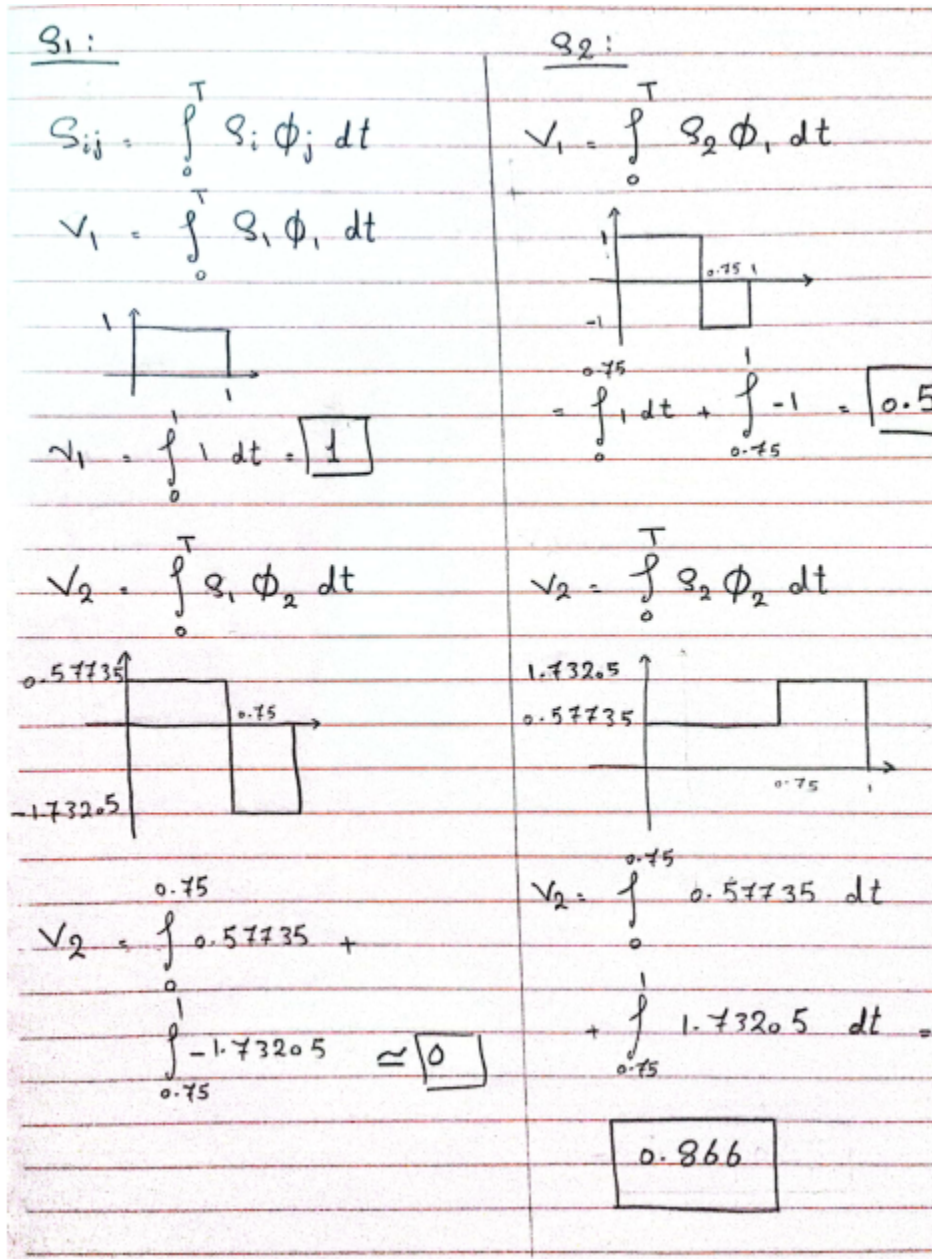 S1:
Sij = ∫₀ᵀ Si ϕj dt
V1 = ∫₀ᵀ S1 ϕ1 dt
1
1
V1 = ∫₀¹ 1 dt = 1
V2 = ∫₀ᵀ S1 ϕ2 dt
0.57735
0.75
-1.73205
V2 = ∫₀^0.75 0.57735 +
∫_0.75^1 -1.73205 ≃ 0
S2:
V1 = ∫₀ᵀ S2 ϕ1 dt
1
0.75 1
-1
= ∫₀^0.75 1 dt + ∫_0.75^1 -1 = 0.5
V2 = ∫₀ᵀ S2 ϕ2 dt
1.73205
0.57735
0.75 1
V2 = ∫₀^0.75 0.57735 dt
+ ∫_0.75^1 1.73205 dt =
0.866